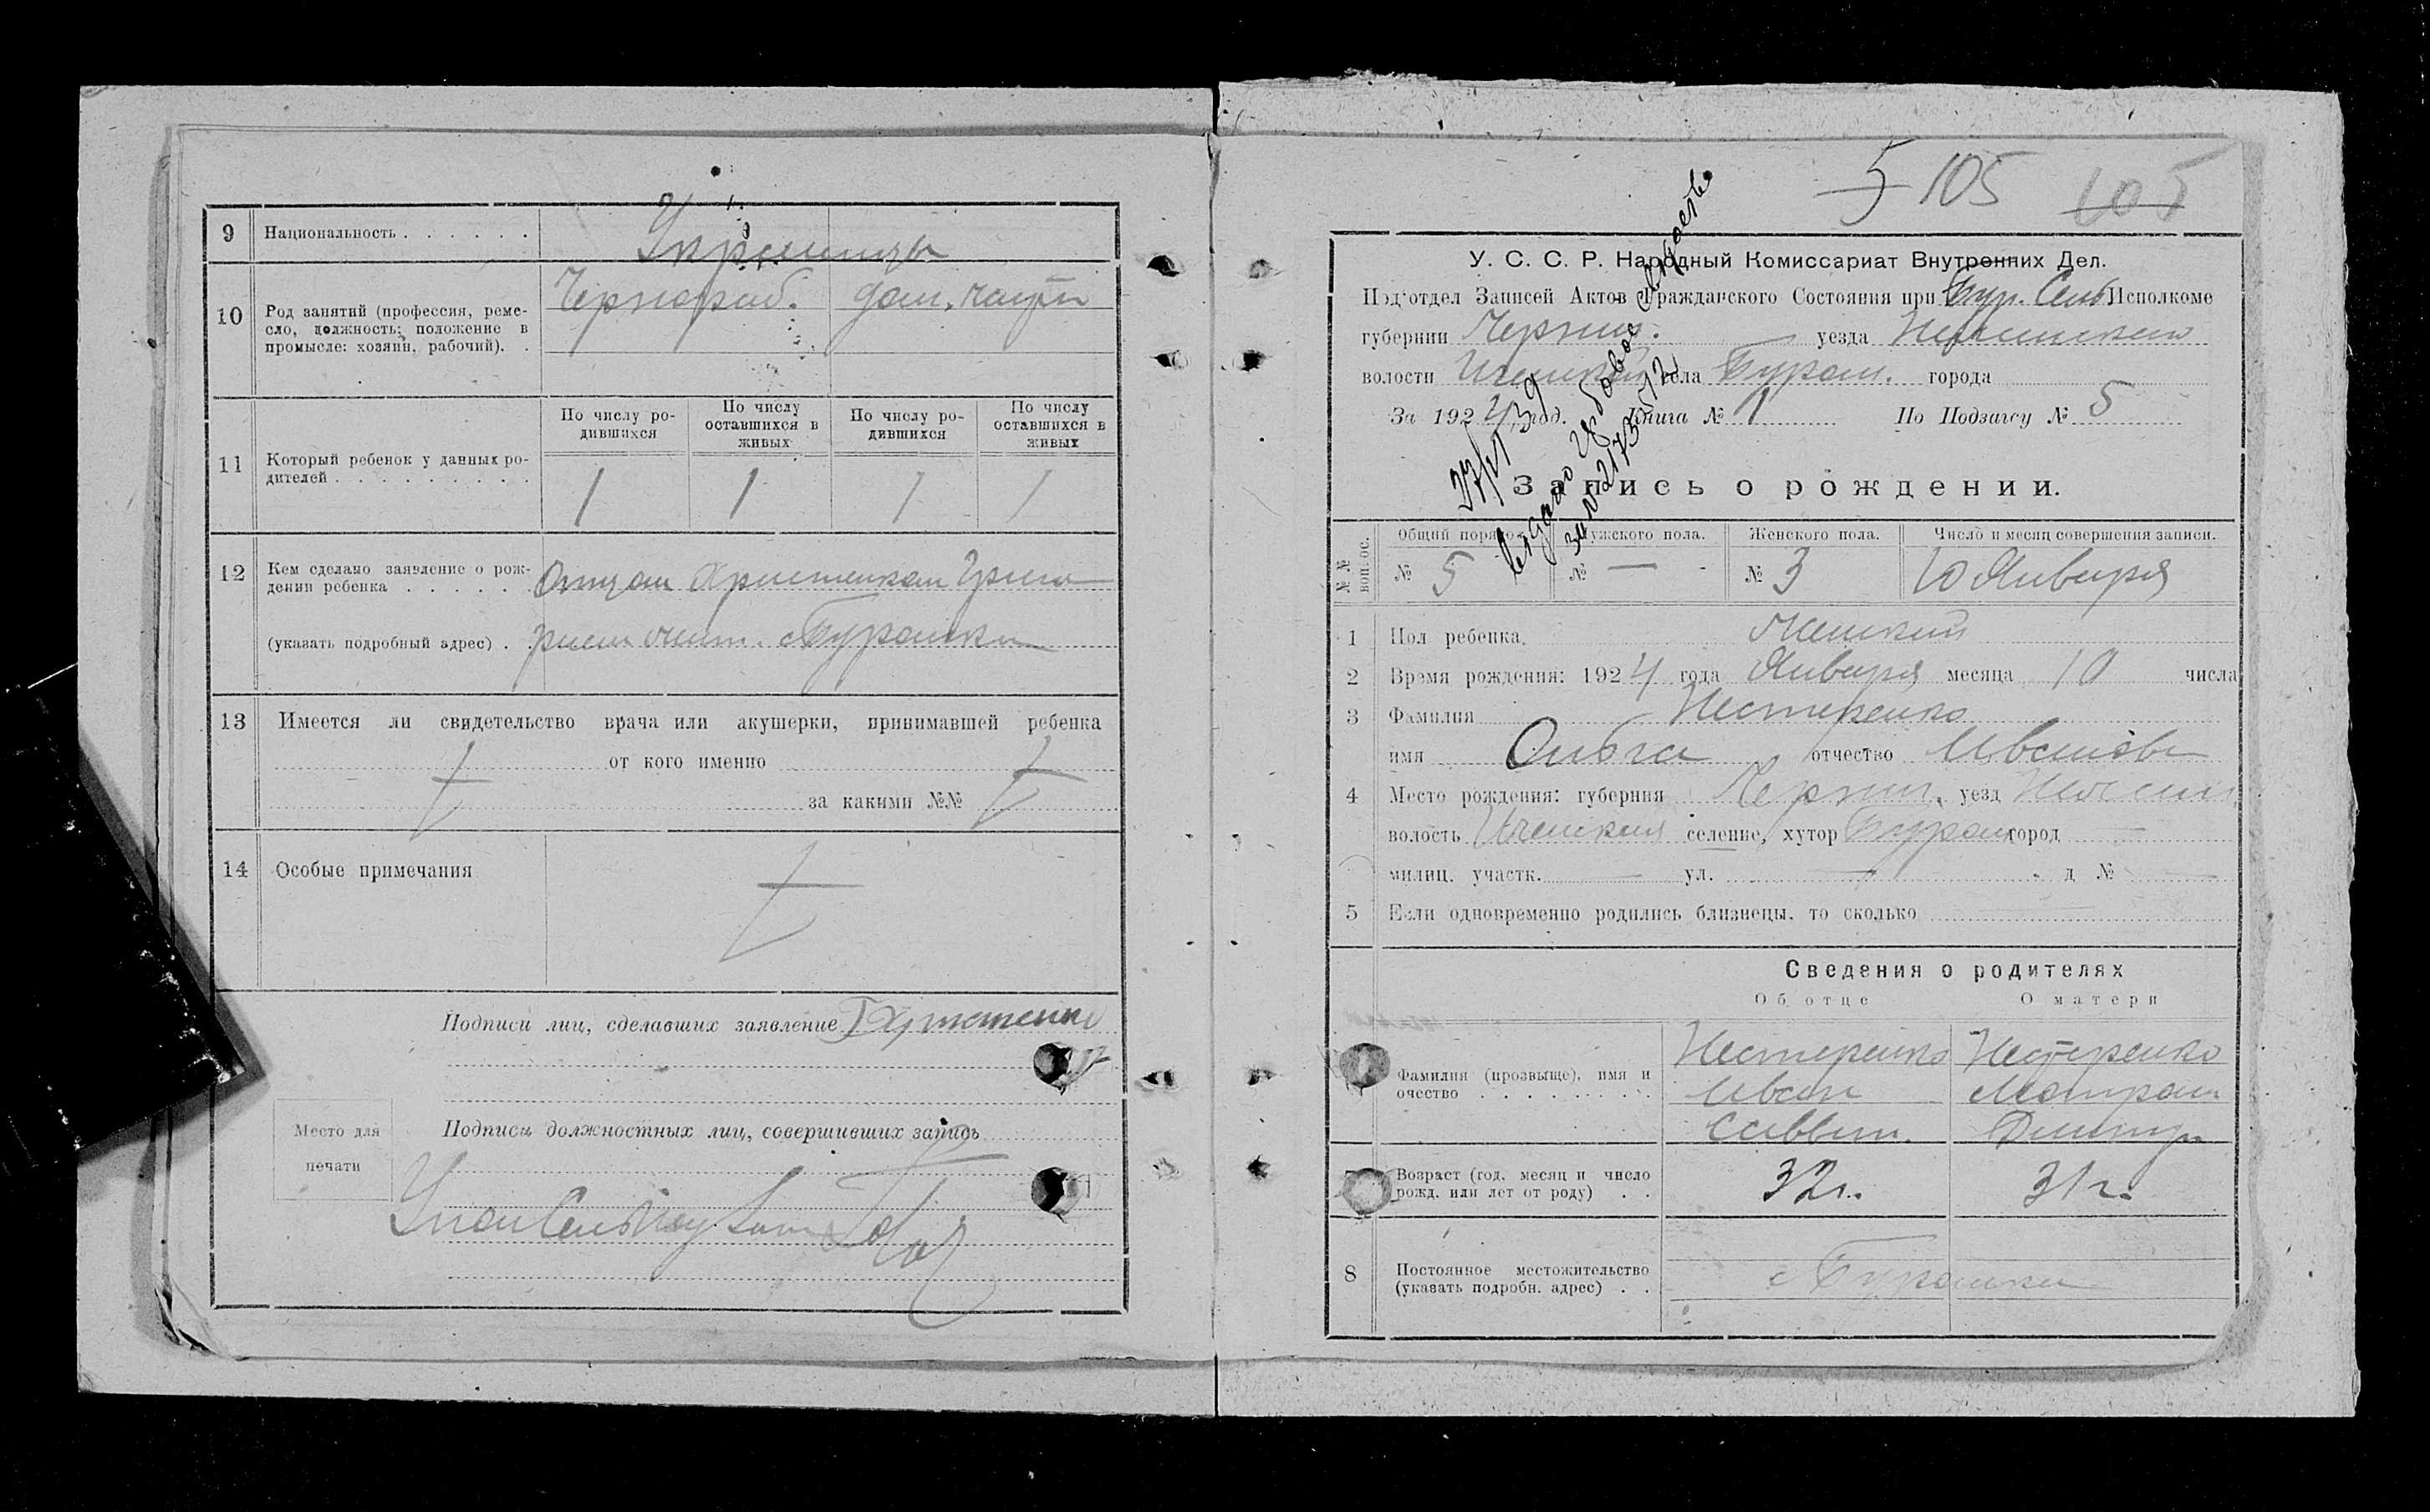 9 Национальность . . . . . . Украинцы
10 Род занятий (профессия, реме-
сло, должность; положение в
промысле: хозяин, рабочий). .
Чернораб.
11 Который ребенок у данных ро-
дителей . . . . . . . . .
По числу ро-
дившихся
По числу
оставшихся в
живых
По числу ро-
дившихся
По числу
оставшихся в
живых
1 1 1 1
12 Кем сделано заявление о рож-
дении ребенка . . . . . .
(указать подробный адрес) . . с Бурошки
13 Имеется ли свидетельство врача или акушерки, принимавшей ребенка
от кого именно
за какими №№
14 Особые примечания
Подписи лиц, сделавших заявление
Место для
печати
Подписи должностных лиц, совершивших запись
5 105 105
У. С. С. Р. Народный Комиссариат Внутренних Дел.
Под'отдел Записей Актов Гражданского Состояния при Бур. Сель Исполкоме
губернии Черниг. уезда Нежинского
волости села города
За 1924 год. Книга № 1 По Подзагсу № 5
27/VI 39
выдано
Запись о рождении.
№№ воп. ос.
Общий порядок
№ 5
Мужского пола.
№ —
Женского пола.
№ 3
Число и месяц совершения записи.
10 Января
1 Пол ребенка. Женский
2 Время рождения: 1924 года Января месяца 10 числа
3 Фамилия Нестеренко
имя Ольга отчество Иванов
4 Место рождения: губерния Черниг. уезд Нежин
волость Иченская селение, хутор город —
милиц. участк. — ул. — д № —
5 Если одновременно родились близнецы, то сколько
Сведения о родителях
Об отце О матери
Фамилия (прозвыще), имя и
очество . . . . . . . . .
Нестеренко
Иван
Саввич.
Нестеренко
Мотрона
Дмитр
Возраст (год, месяц и число
рожд. или лет от роду) . .
32 г.
31 г.
8 Постоянное местожительство
(указать подробн. адрес) . .
с Бурошки